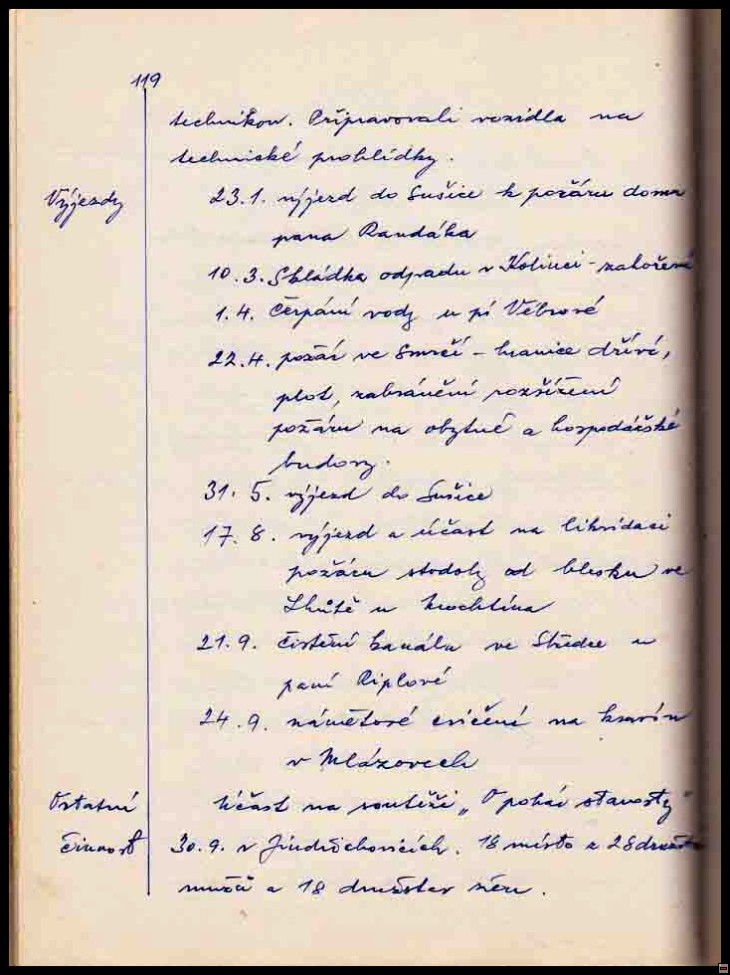 119
technikou. Připravovali vozidla na
technické prohlídky.
Výjezdy
23.1. výjezd do Sušice k požáru domu
pana Randáka
10.3. Skládka odpadu v Kolinci - zahoření
1.4. Čerpání vody u pí Vébrové
22.4. požár ve Smrčí - hranice dříví,
plot, zabránění rozšíření
požáru na obytné a hospodářské
budovy.
31.5. výjezd do Sušice
17.8. výjezd a účast na likvidaci
požáru stodoly od blesku ve
Lhůtě u
21.9. Čistění kanálu ve Středce u
paní Riplové
24.9. námětové cvičení na kravín
v Mlázovech
Ostatní
činnost
Účast na soutěži „O pohár starosty"
30.9. v Jindřichovicích. 18 místo z 28 družstev
mužů a 18 družstev žen.